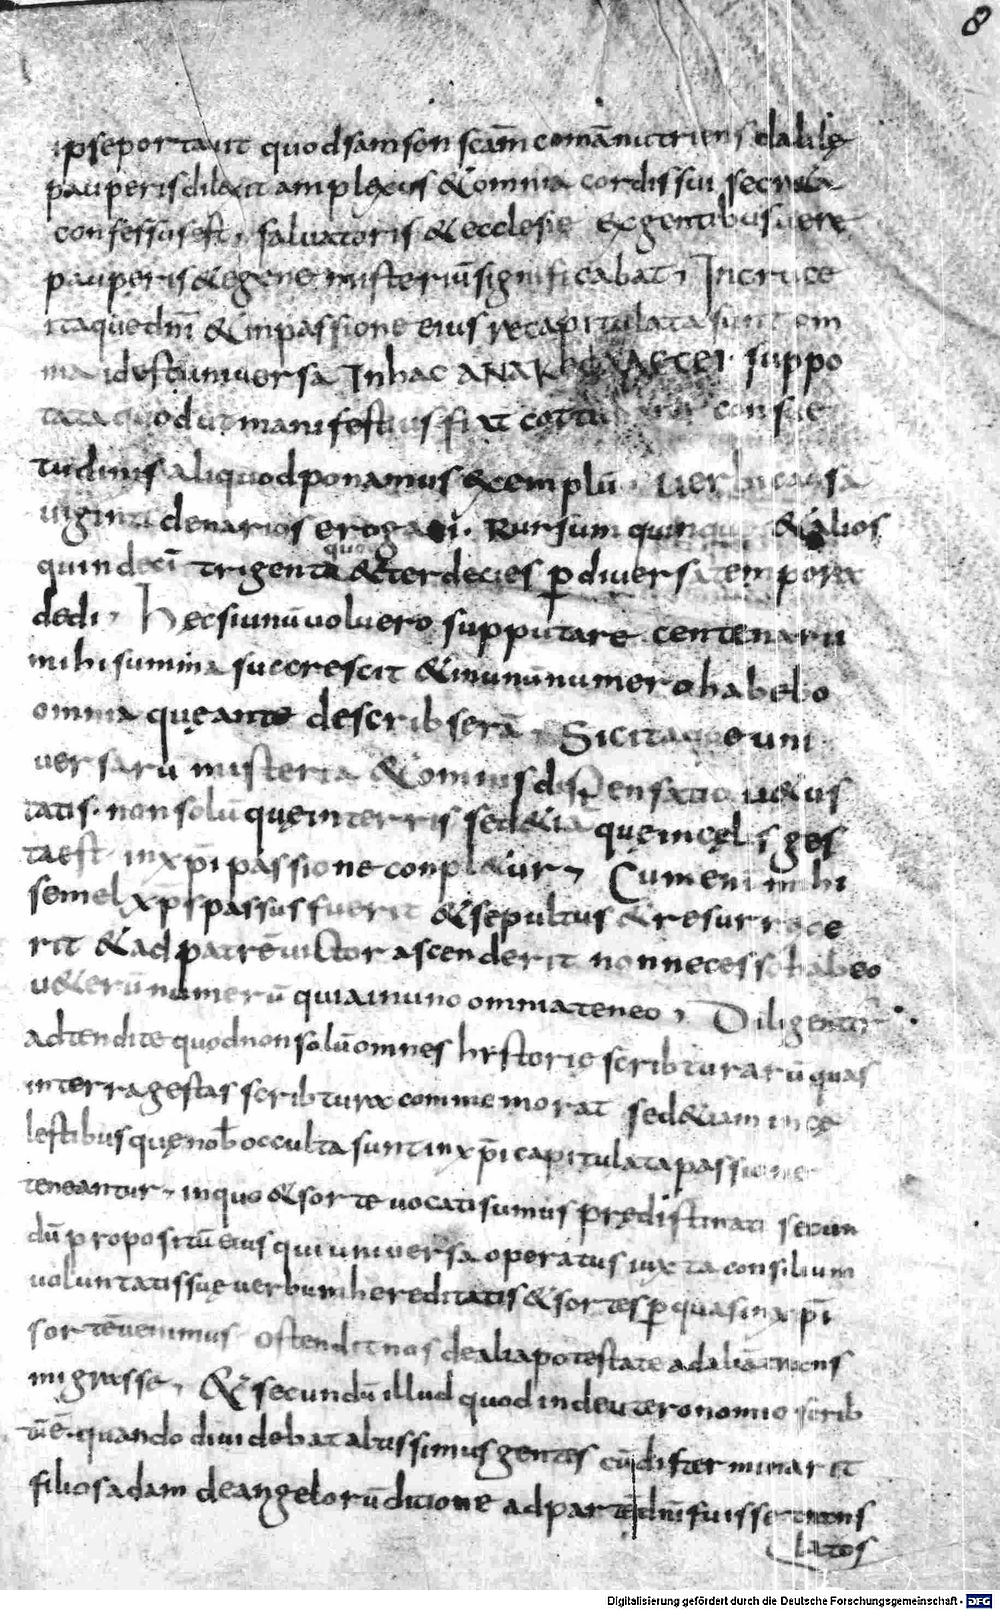 8
ipse portavit quod samson scām comā nutriens dalilę
pauperis dilexit amplexus & omnia cordis sui secreta
confessus est, salvatoris & ecclesie ex gentibus vere
pauperis & egene misteriū significabat, In cruce
itaque dn̄i & in passione eius recapitulata sunt om
nia id est universa In hac suppo
tata quod ut manifestius fiat consue
tudinis aliquod ponamus exemplū. verbi causa
viginti denarios erogavi. Rursum quinque & alios
quindeci triginta quoq; & ter decies ꝑ diversa tempora
dedi, Hec si unū voluero supputare centenarii
mihi summa succrescit & in unū numero habebo
omnia quę ante describserā, Sic itaque uni
versarū misteria & omnis dispensatio v&us
tatis. non solū quę in terris sed & ia quę in cęlis ges
ta est in xp̄i passione conpl&ur, Cum enim mihi
semel xp̄s passus fuerit & sepultus & resurrexe
rit & ad patrē victor ascenderit non necesso habeo
v&erū numerū quia in uno omnia teneo, Diligenter
adtendite quod non solū omnes hystorię scribturarū quas
in terra gestas scribtura commemorat sed &iam in cę
lestibus quę nob̄ occulta sunt in xp̄i capitulata passione
teneantur, in quo & sorte vocati sumus prędistinati secun
dū propositū eius qui universa operatus iuxta consilium
voluntatis suę verbum hereditatis & sortes ꝑ quas in xp̄i
sortē venimus ostendit nos de alia potestate ad aliā trans
migrasse, & secundū illud quod in deuteronomio scrib
tū ē. quando dividebat altissimus gentes cū disterminarit
filios adam de angelorū dicione ad partē dn̄i fuisse trans
latos
Digitalisierung gefördert durch die Deutsche Forschungsgemeinschaft - DFG